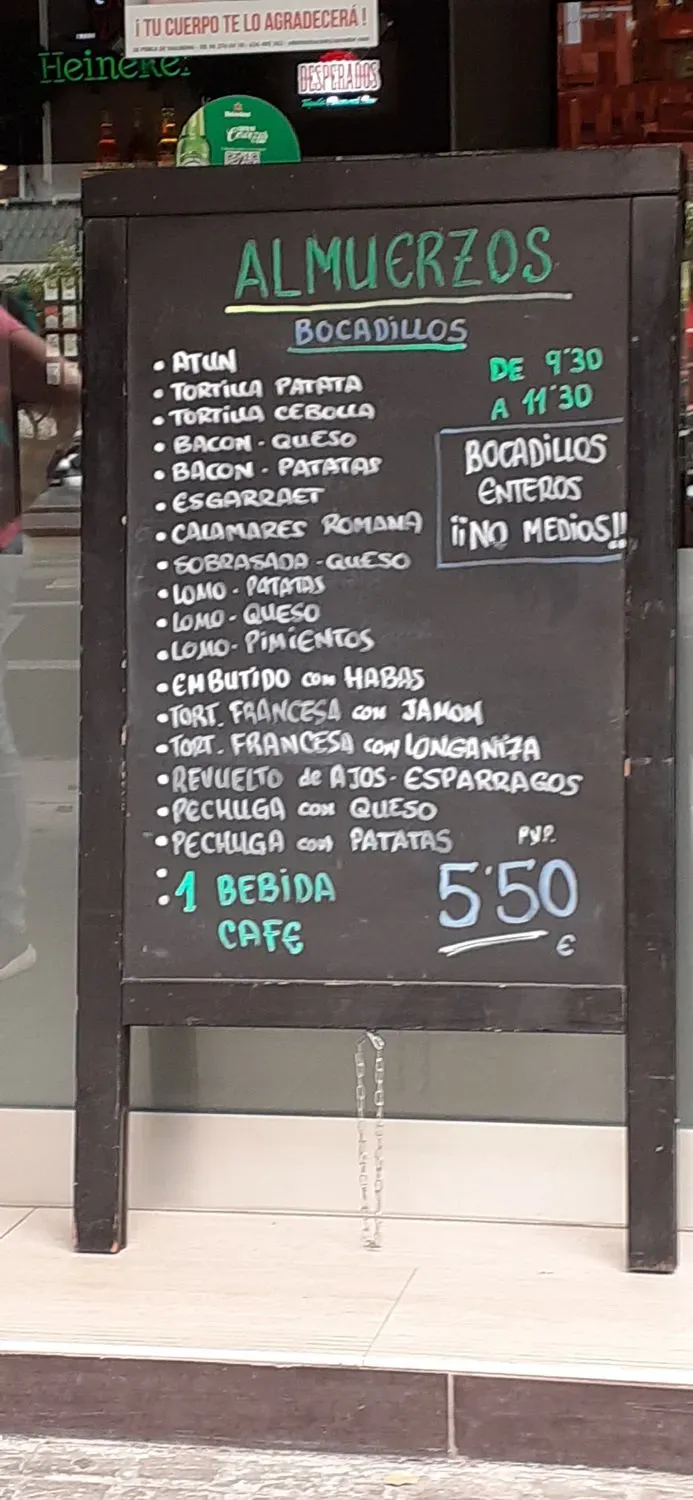 ¡TU CUERPO TE LO AGRADECERÁ!
Heineken
DESPERADOS
ALMUERZOS
BOCADILLOS
• ATUN
• TORTILLA PATATA
• TORTILLA CEBOLLA
• BACON - QUESO
• BACON - PATATAS
• ESGARRAET
• CALAMARES ROMANA
• SOBRASADA - QUESO
• LOMO - PATATAS
• LOMO - QUESO
• LOMO - PIMIENTOS
• EMBUTIDO con HABAS
• TORT. FRANCESA con JAMON
• TORT. FRANCESA con LONGANIZA
• REVUELTO de AJOS - ESPARRAGOS
• PECHUGA con QUESO
• PECHUGA con PATATAS
DE 9'30
A 11'30
BOCADILLOS
ENTEROS
¡¡NO MEDIOS!!
: 1 BEBIDA
CAFE
P.V.P.
5'50
€